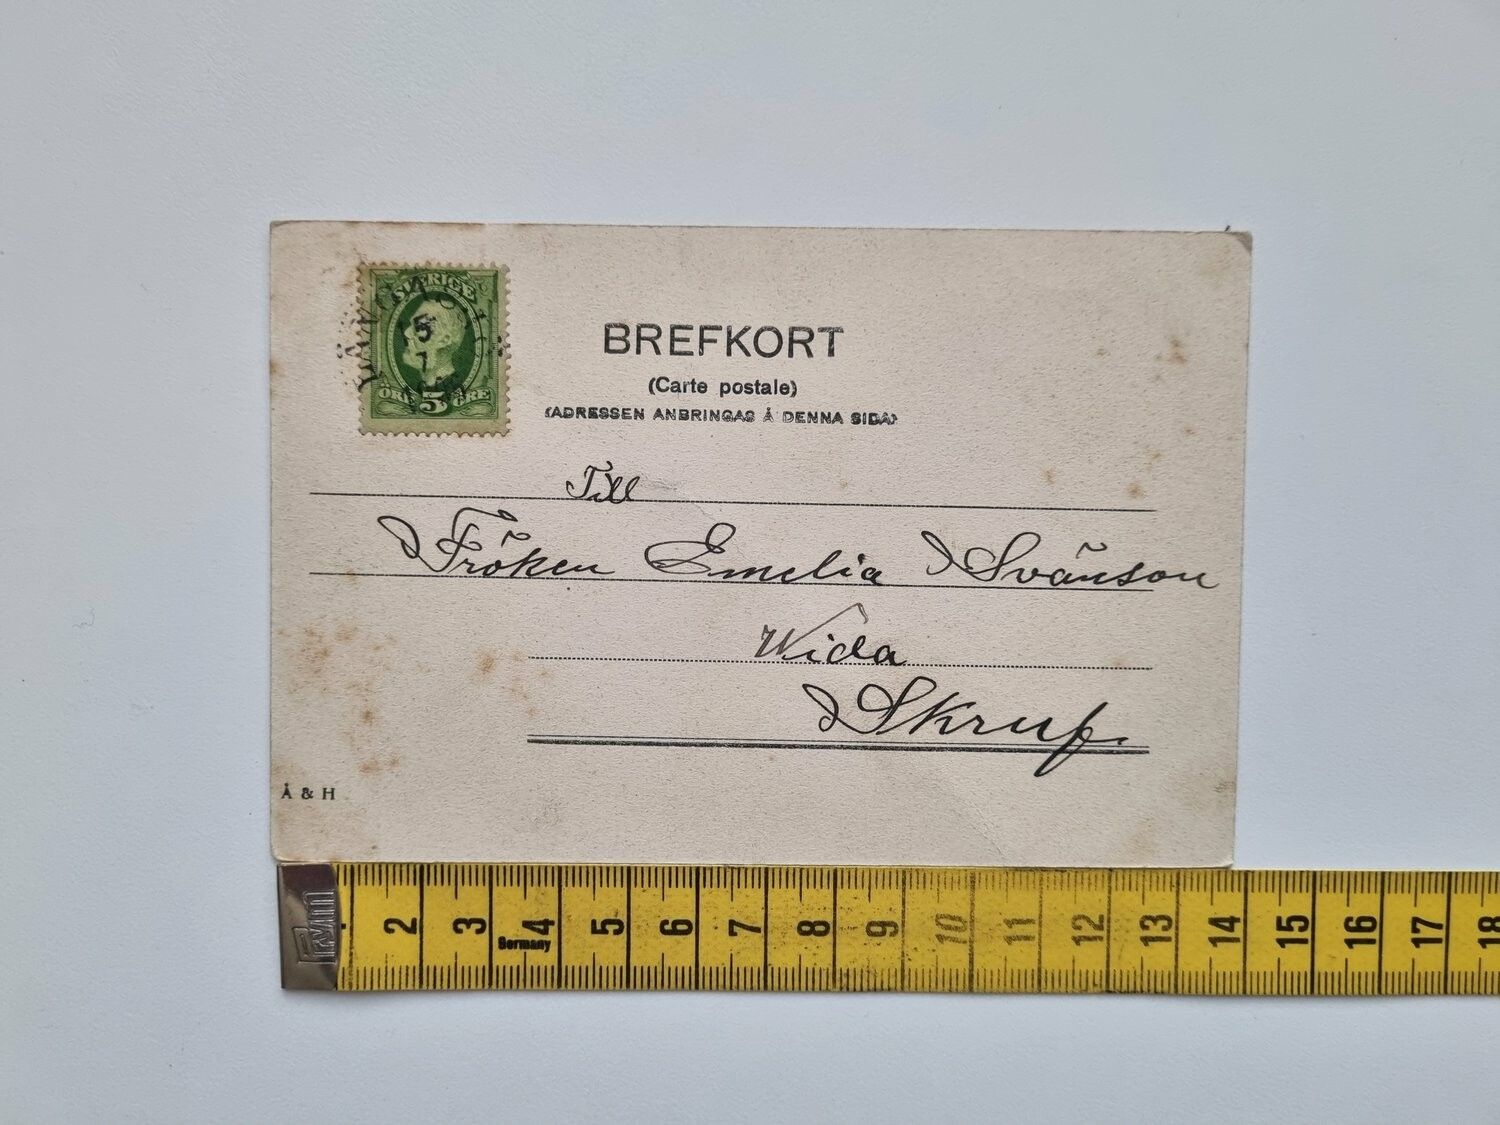 SVERIGE
5
1
ÖRE 5 ÖRE
BREFKORT
(Carte postale)
(ADRESSEN ANBRINGAS Å DENNA SIDA)
Till
Fröken Emelia Svänson
Wida
Skruf.
Å & H
Prym
2 3 4 5 6 7 8 9 10 11 12 13 14 15 16 17 18
Germany